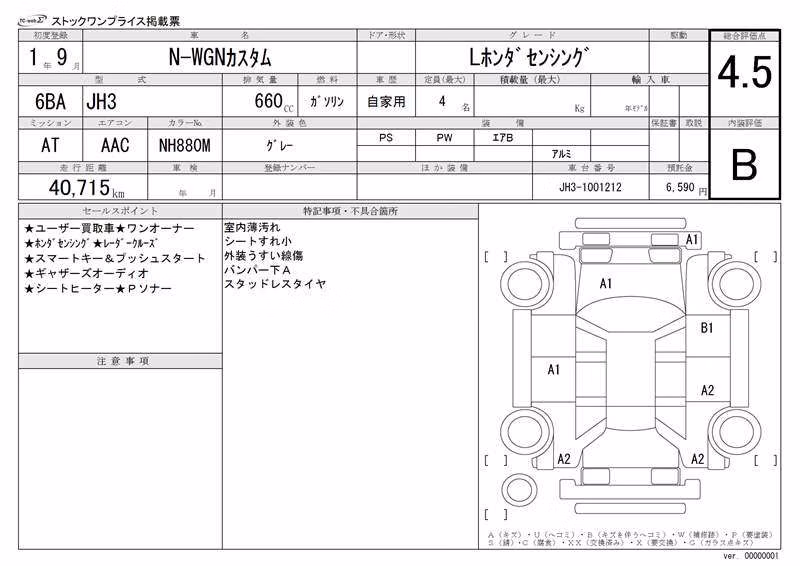 TC-webΣ ストックワンプライス掲載票
初度登録 車名 ドア・形状 グレード 駆動 総合評価点
1年 9月 N-WGNカスタム Lホンダセンシング 4.5
型式 排気量 燃料 車歴 定員(最大) 積載量(最大) 輸入車
6BA JH3 660CC ガソリン 自家用 4名 Kg 年モデル
ミッション エアコン カラーNo. 外装色 装備 保証書 取説 内装評価
AT AAC NH880M グレー PS PW エアB B
アルミ
走行距離 車検 登録ナンバー ほか装備 車台番号 預託金
40,715km 年 月 JH3-1001212 6,590円
セールスポイント 特記事項・不具合箇所
★ユーザー買取車★ワンオーナー
★ホンダセンシング★レーダークルーズ
★スマートキー&プッシュスタート
★ギャザーズオーディオ
★シートヒーター★Pソナー
注意事項
室内薄汚れ
シートすれ小
外装うすい線傷
バンパー下A
スタッドレスタイヤ
A1
[ ] [ ]
A1
B1
A1
A2
A2 A2
[ ] [ ]
[ ]
A(キズ)・U(ヘコミ)・B(キズを伴うヘコミ)・W(補修跡)・P(要塗装)
S(錆)・C(腐食)・XX(交換済み)・X(要交換)・G(ガラス点キズ)
ver. 00000001